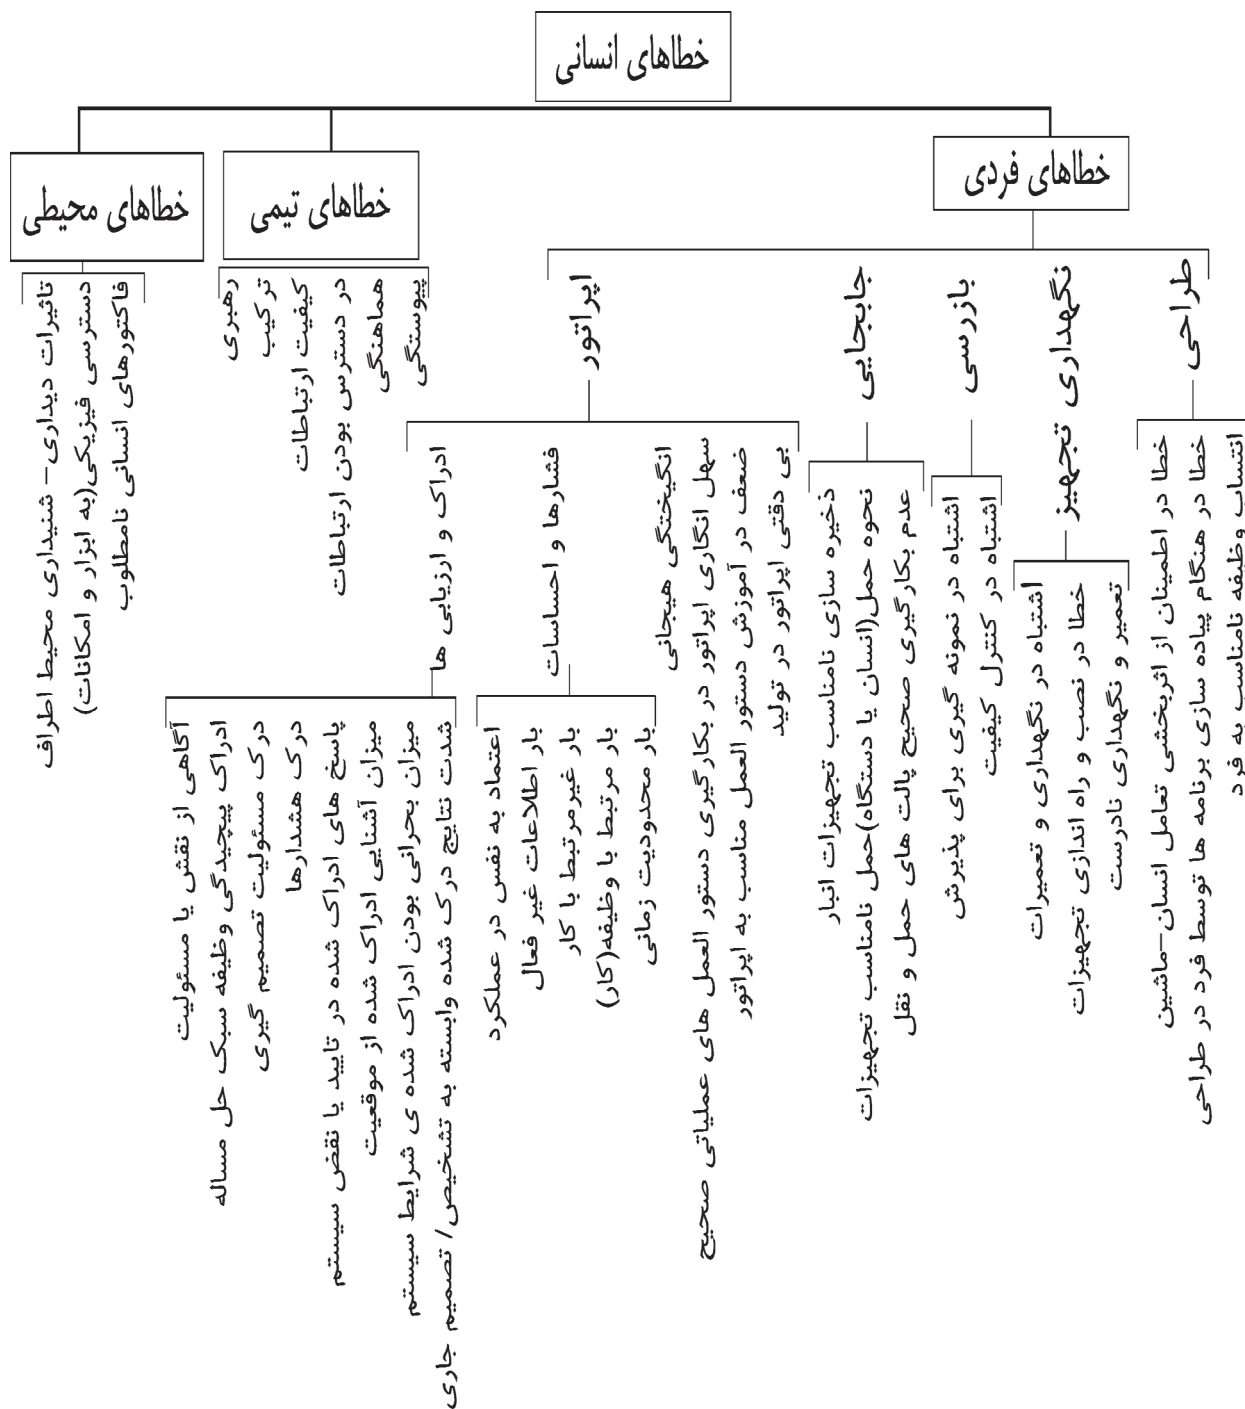 خطاهای انسانی
خطاهای فردی
خطاهای تیمی
خطاهای محیطی
طراحی
نگهداری تجهیز
بازرسی
جابجایی
اپراتور
انتساب وظیفه نامناسب به فرد
خطا در هنگام پیاده سازی برنامه ها توسط فرد در طراحی
خطا در اطمینان از اثربخشی تعامل انسان-ماشین
تعمیر و نگهداری نادرست
خطا در نصب و راه اندازی تجهیزات
اشتباه در نگهداری و تعمیرات
اشتباه در کنترل کیفیت
اشتباه در نمونه گیری برای پذیرش
عدم بکارگیری صحیح پالت های حمل و نقل
نحوه حمل(انسان یا دستگاه)حمل نامناسب تجهیزات
ذخیره سازی نامناسب تجهیزات انبار
بی دقتی اپراتور در تولید
ضعف در آموزش دستور العمل مناسب به اپراتور
سهل انگاری اپراتور در بکارگیری دستور العمل های عملیاتی صحیح
انگیختگی هیجانی
فشارها و احساسات
ادراک و ارزیابی ها
بار محدودیت زمانی
بار مرتبط با وظیفه(کار)
بار غیرمرتبط با کار
بار اطلاعات غیر فعال
اعتماد به نفس در عملکرد
شدت نتایج درک شده وابسته به تشخیص/ تصمیم جاری
میزان بحرانی بودن ادراک شده ی شرایط سیستم
میزان آشنایی ادراک شده از موقعیت
پاسخ های ادراک شده در تایید یا نقض سیستم
درک هشدارها
درک مسئولیت تصمیم گیری
ادراک پیچیدگی وظیفه سبک حل مساله
آگاهی از نقش یا مسئولیت
پیوستگی
هماهنگی
در دسترس بودن ارتباطات
کیفیت ارتباطات
ترکیب
رهبری
فاکتورهای انسانی نامطلوب
دسترسی فیزیکی(به ابزار و امکانات)
تاثیرات دیداری- شنیداری محیط اطراف